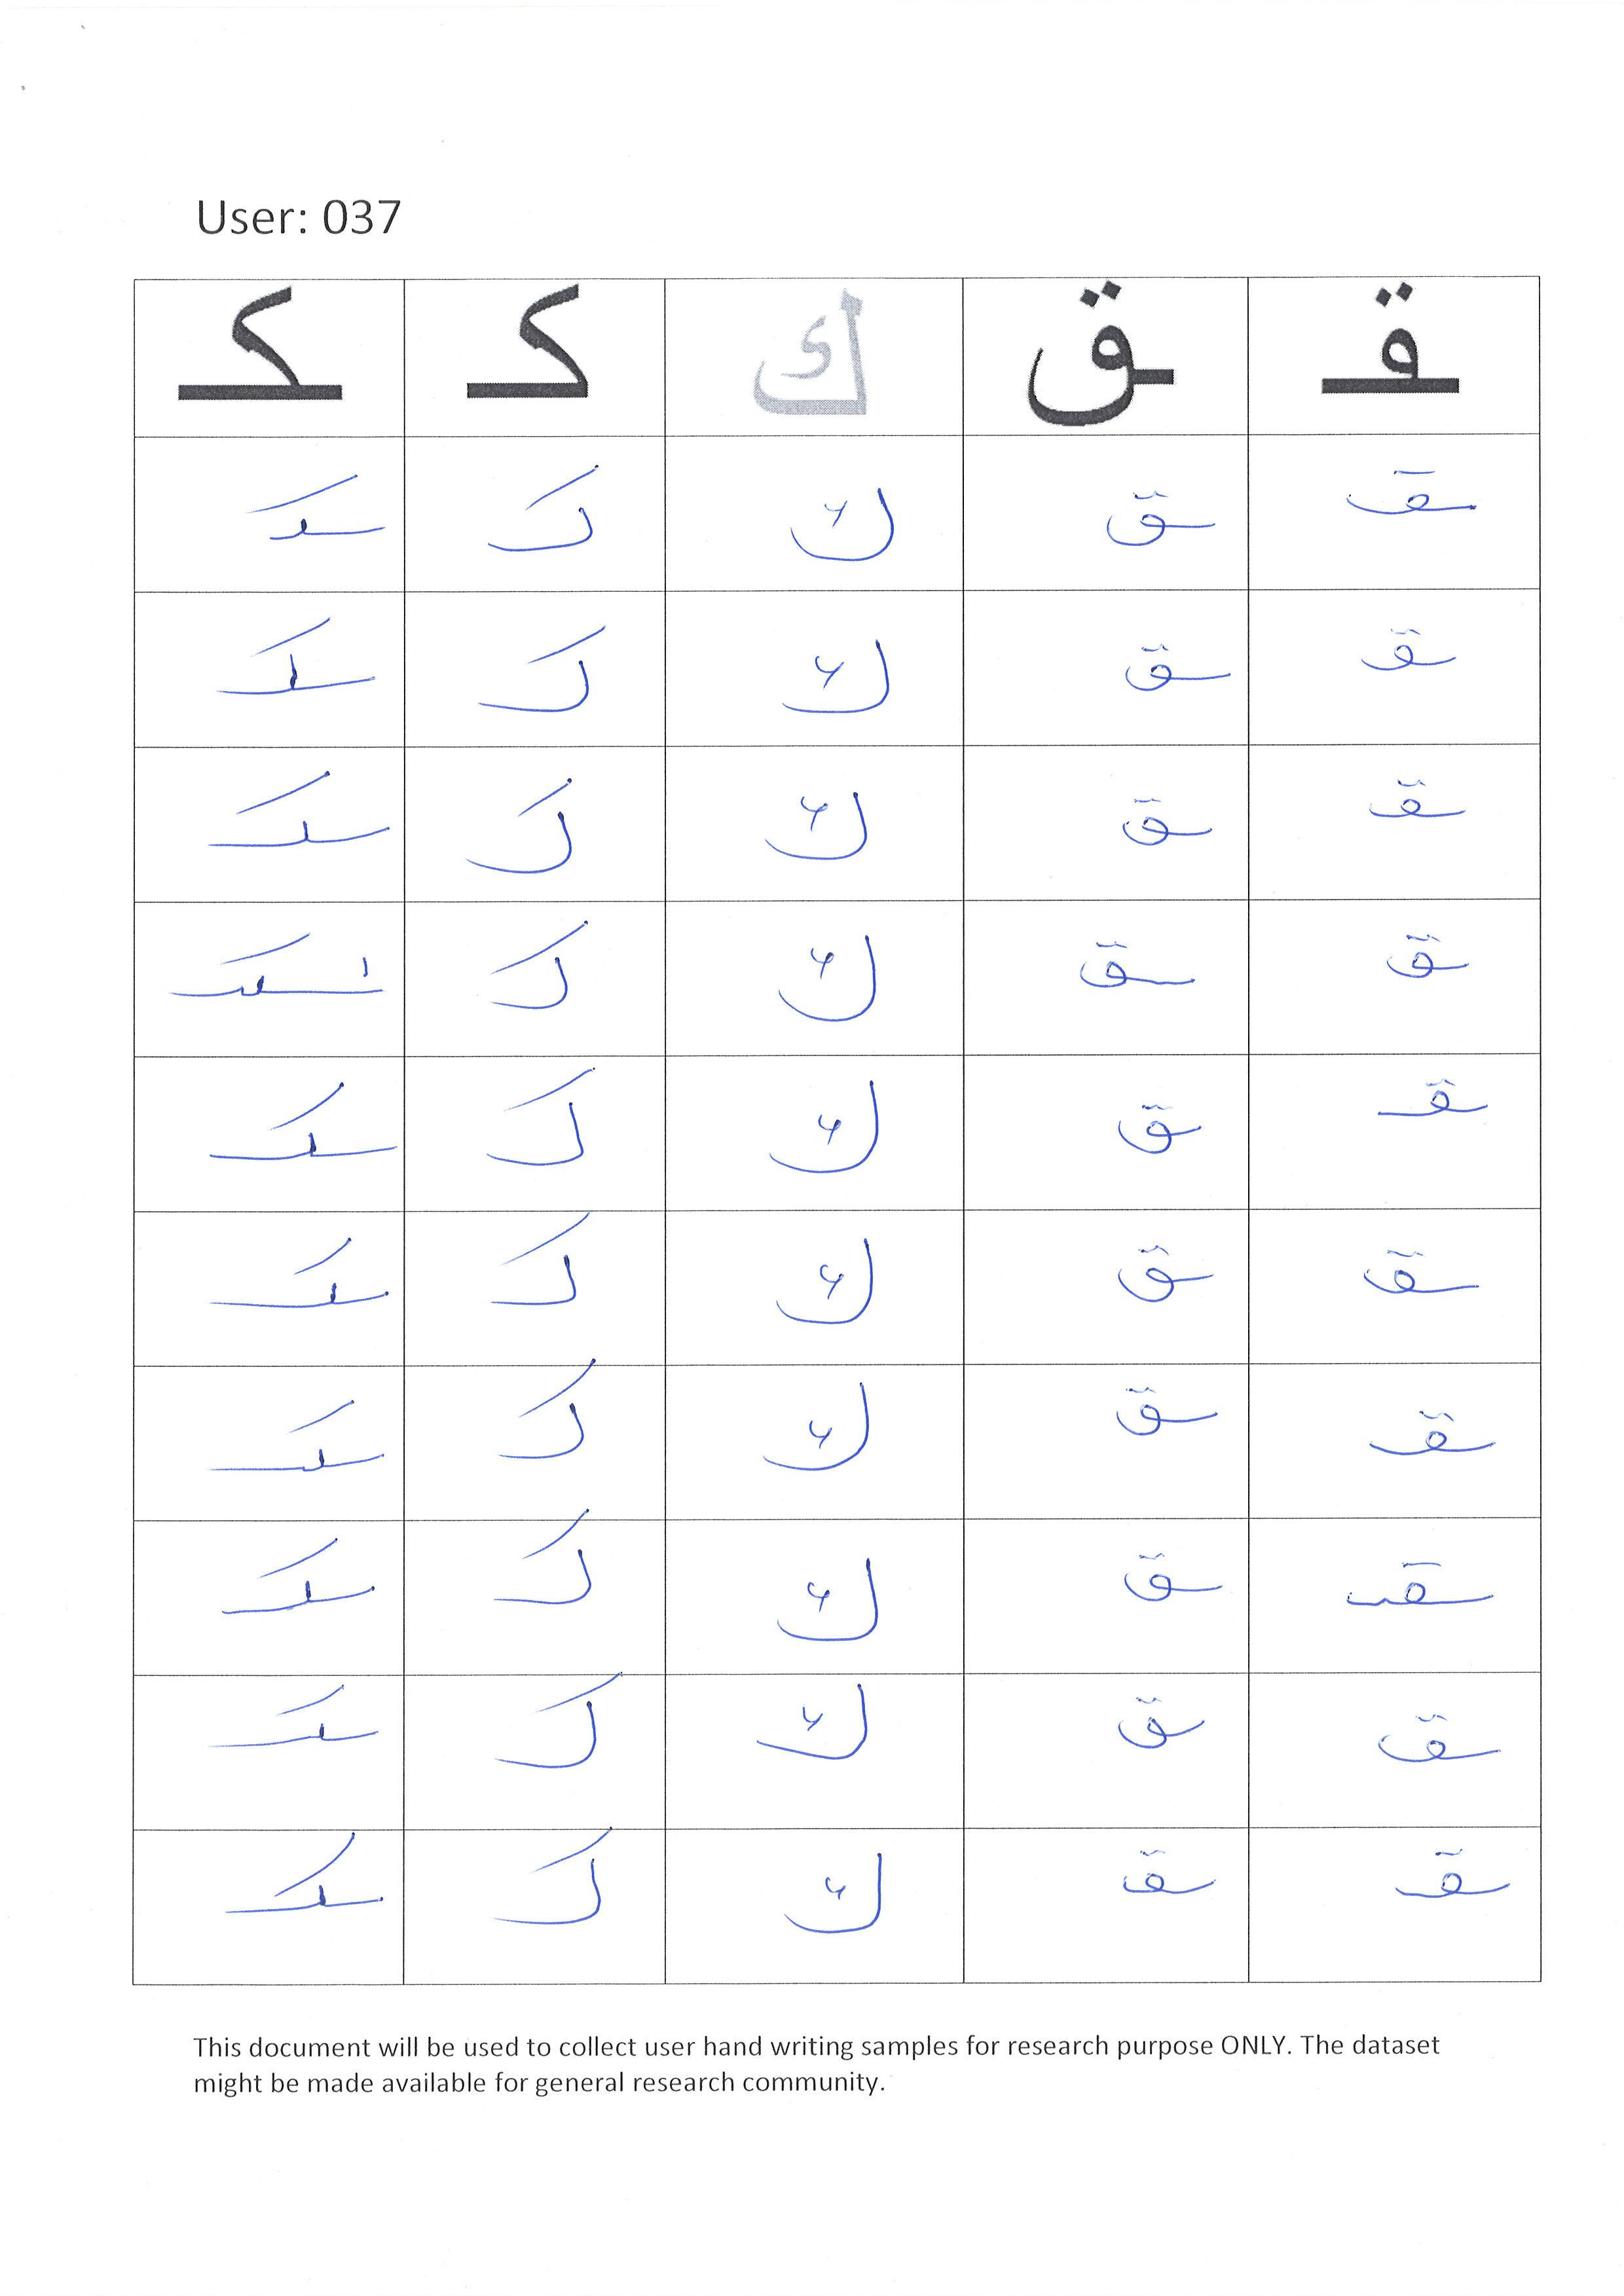 User: 037
ـقـ ـق ك كـ ـكـ
ـقـ ـق ك كـ ـكـ
ـقـ ـق ك كـ ـكـ
ـقـ ـق ك كـ ـكـ
ـقـ ـق ك كـ ـكـ
ـقـ ـق ك كـ ـكـ
ـقـ ـق ك كـ ـكـ
ـقـ ـق ك كـ ـكـ
ـقـ ـق ك كـ ـكـ
ـقـ ـق ك كـ ـكـ
ـقـ ـق ك كـ ـكـ
This document will be used to collect user hand writing samples for research purpose ONLY. The dataset
might be made available for general research community.